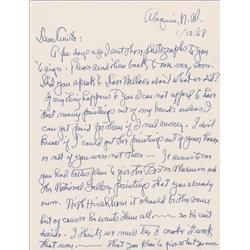 Abiquiu, N.M.
1/12/68
Dear Anita:
A few days ago I sent those photographs to you
to sign. Please send them back to me very soon.
Did you speak to Dan about what we did?
If anything happens to you I can not afford to have
that many paintings out of my hands unless I
can get paid for them if I need money. I don't
know if I could get the paintings out of your house
or not if you were not there — It seems to me
you had better plan to give the Boston Museum and
the National Gallery paintings that you already
own. Not Hirshhorn it should be his own
but of course he wants them all — so he said
besides. I think we must try to make it work
that way — that you plan to give what you own